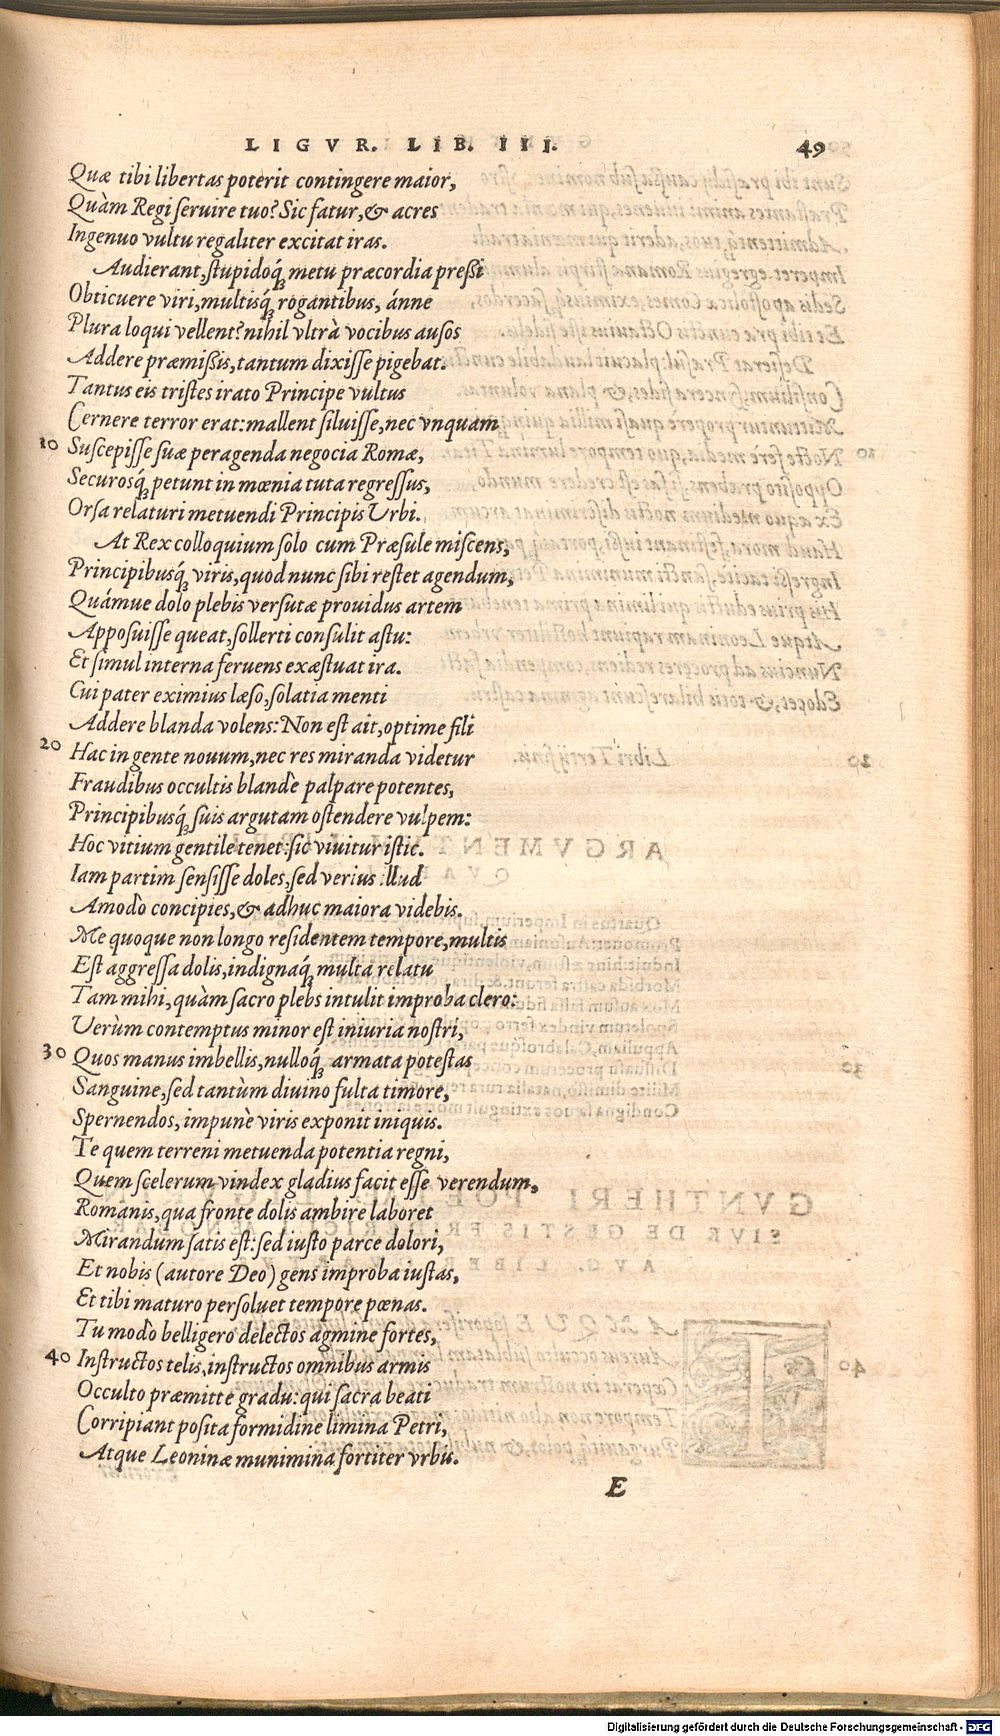 LIGVR. LIB. III. 49
Quæ tibi libertas poterit contingere maior,
Quàm Regi seruire tuo? Sic fatur, & acres
Ingenuo vultu regaliter excitat iras.
Audierant, stupidoq́; metu præcordia pressi
Obticuere viri, multisq́; rogantibus, ánne
Plura loqui vellent? nihil vltrà vocibus ausos
Addere præmissis, tantum dixisse pigebat.
Tantus eis tristes irato Principe vultus
Cernere terror erat: mallent siluisse, nec vnquam
10 Suscepisse suæ peragenda negocia Romæ,
Securosq́; petunt in mœnia tuta regressus,
Orsa relaturi metuendi Principis Urbi.
At Rex colloquium solo cum Præsule miscens,
Principibusq́; viris, quod nunc sibi restet agendum,
Quámue dolo plebis versutæ prouidus artem
Apposuisse queat, sollerti consulit astu:
Et simul interna feruens exæstuat ira.
Cui pater eximius læso, solatia menti
Addere blanda volens: Non est ait, optime fili
20 Hac in gente nouum, nec res miranda videtur
Fraudibus occultis blandè palpare potentes,
Principibusq́; suis argutam ostendere vulpem:
Hoc vitium gentile tenet: sic viuitur istic.
Iam partim sensisse doles, sed verius illud
Amodò concipies, & adhuc maiora videbis.
Me quoque non longo residentem tempore, multis
Est aggressa dolis, indignaq́; multa relatu
Tam mihi, quàm sacro plebs intulit improba clero:
Verùm contemptus minor est iniuria nostri,
30 Quos manus imbellis, nulloq́; armata potestas
Sanguine, sed tantùm diuino fulta timore,
Spernendos, impunè viris exponit iniquis.
Te quem terreni metuenda potentia regni,
Quem scelerum vindex gladius facit esse verendum,
Romanis, qua fronte dolis ambire laboret
Mirandum satis est: sed iusto parce dolori,
Et nobis (autore Deo) gens improba iustas,
Et tibi maturo persoluet tempore pœnas.
Tu modò belligero delectos agmine fortes,
40 Instructos telis, instructos omnibus armis
Occulto præmitte gradu: qui sacra beati
Corripiant posita formidine limina Petri,
Atque Leoninæ munimina fortiter vrbis.
E
Digitalisierung gefördert durch die Deutsche Forschungsgemeinschaft - DFG